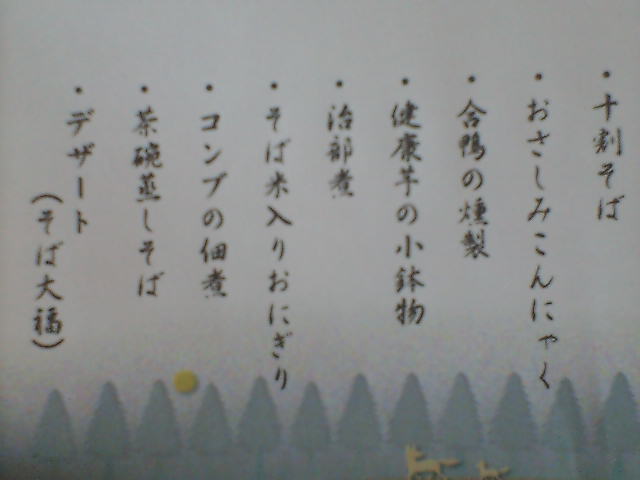 ・十割そば
・おさしみこんにゃく
・合鴨の燻製
・健康芋の小鉢物
・治部煮
・そば米入りおにぎり
・コンブの佃煮
・茶碗蒸しそば
・デザート
（そば大福）